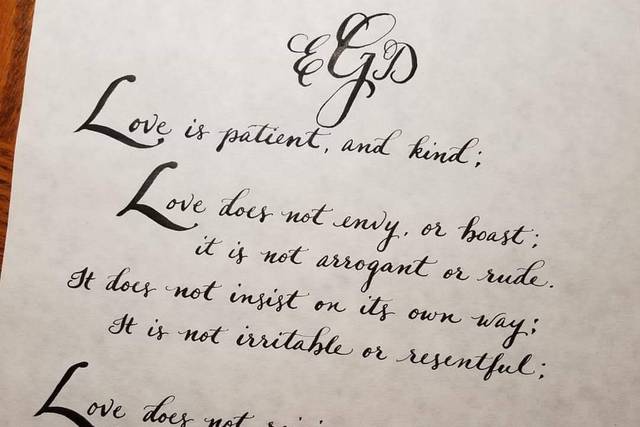 EGD
Love is patient, and kind;
Love does not envy, or boast;
it is not arrogant or rude.
It does not insist on its own way;
It is not irritable or resentful;
Love does not